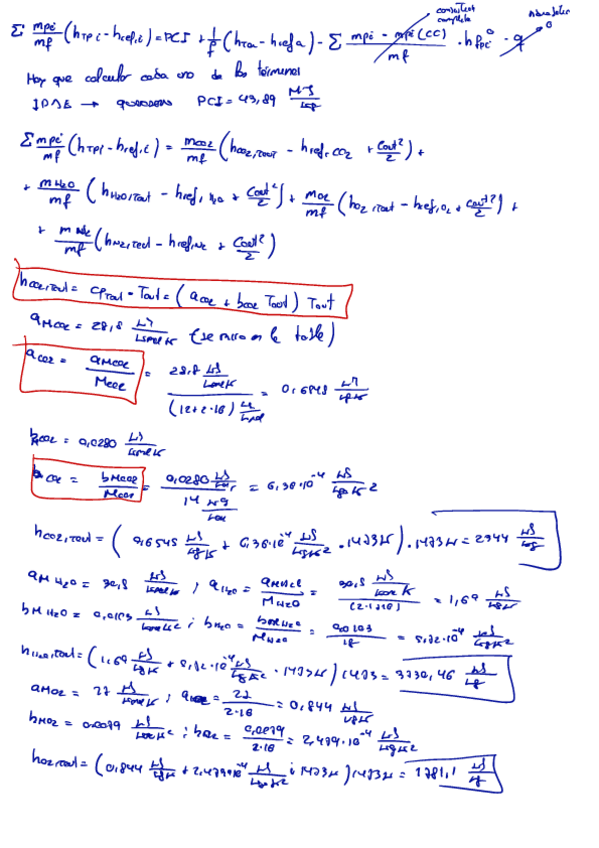 combustión completa
Σ mpi/mf (hTPi - href,i) = PCI + 1/F (hTa - hrefa) - Σ mpi - mpi(CC)/mf · hfpi° - q 0
Hay que calcular cada uno de los términos
→ queroseno PCI = 43,89 MJ/kg
Σ mpi/mf (hTPi - href,i) = mCO2/mf (hCO2,Tout - href,CO2 + Cout²/2) +
+ mH2O/mf (hH2O,Tout - href,H2O + Cout²/2) + mO2/mf (hO2,Tout - href,O2 + Cout²/2) +
+ mN2/mf (hN2,Tout - href,N2 + Cout²/2)
hCO2,Tout = CpTout · Tout = (aCO2 + bCO2 Tout) Tout
aMCO2 = 28,8 kJ/kmol K (se mira en la tabla)
aCO2 = aMCO2/MCO2 = 28,8 kJ/kmol K / (12+2·16) kg/kmol = 0,6545 kJ/kg K
bCO2 = 0,0280 kJ/kmol K
bCO2 = bMCO2/MCO2 = 0,0280 kJ / 14 kg = 6,36·10⁻⁴ kJ/kg K²
hCO2,Tout = (0,6545 kJ/kg K + 6,36·10⁻⁴ kJ/kg K² · 1473K) · 1473K = 2344 kJ/kg
aMH2O = 30,5 kJ/kmol K ; aH2O = aMH2O/MH2O = 30,5 kJ/kmol K / (2·1+16) = 1,69 kJ/kg K
bMH2O = 0,0103 kJ/kmol K² ; bH2O = bMH2O/MH2O = 0,0103/18 = 5,72·10⁻⁴ kJ/kg K²
hH2O,Tout = (1,69 kJ/kg K + 5,72·10⁻⁴ kJ/kg K² · 1473K) 1473 = 3730,46 kJ/kg
aMO2 = 27 kJ/kmol K ; aO2 = 27/2·16 = 0,844 kJ/kg K
bMO2 = 0,0079 kJ/kmol K² ; bO2 = 0,0079/2·16 = 2,479·10⁻⁴ kJ/kg K²
hO2,Tout = (0,844 kJ/kg K + 2,479·10⁻⁴ kJ/kg K² · 1473K) 1473K = 1781,1 kJ/kg